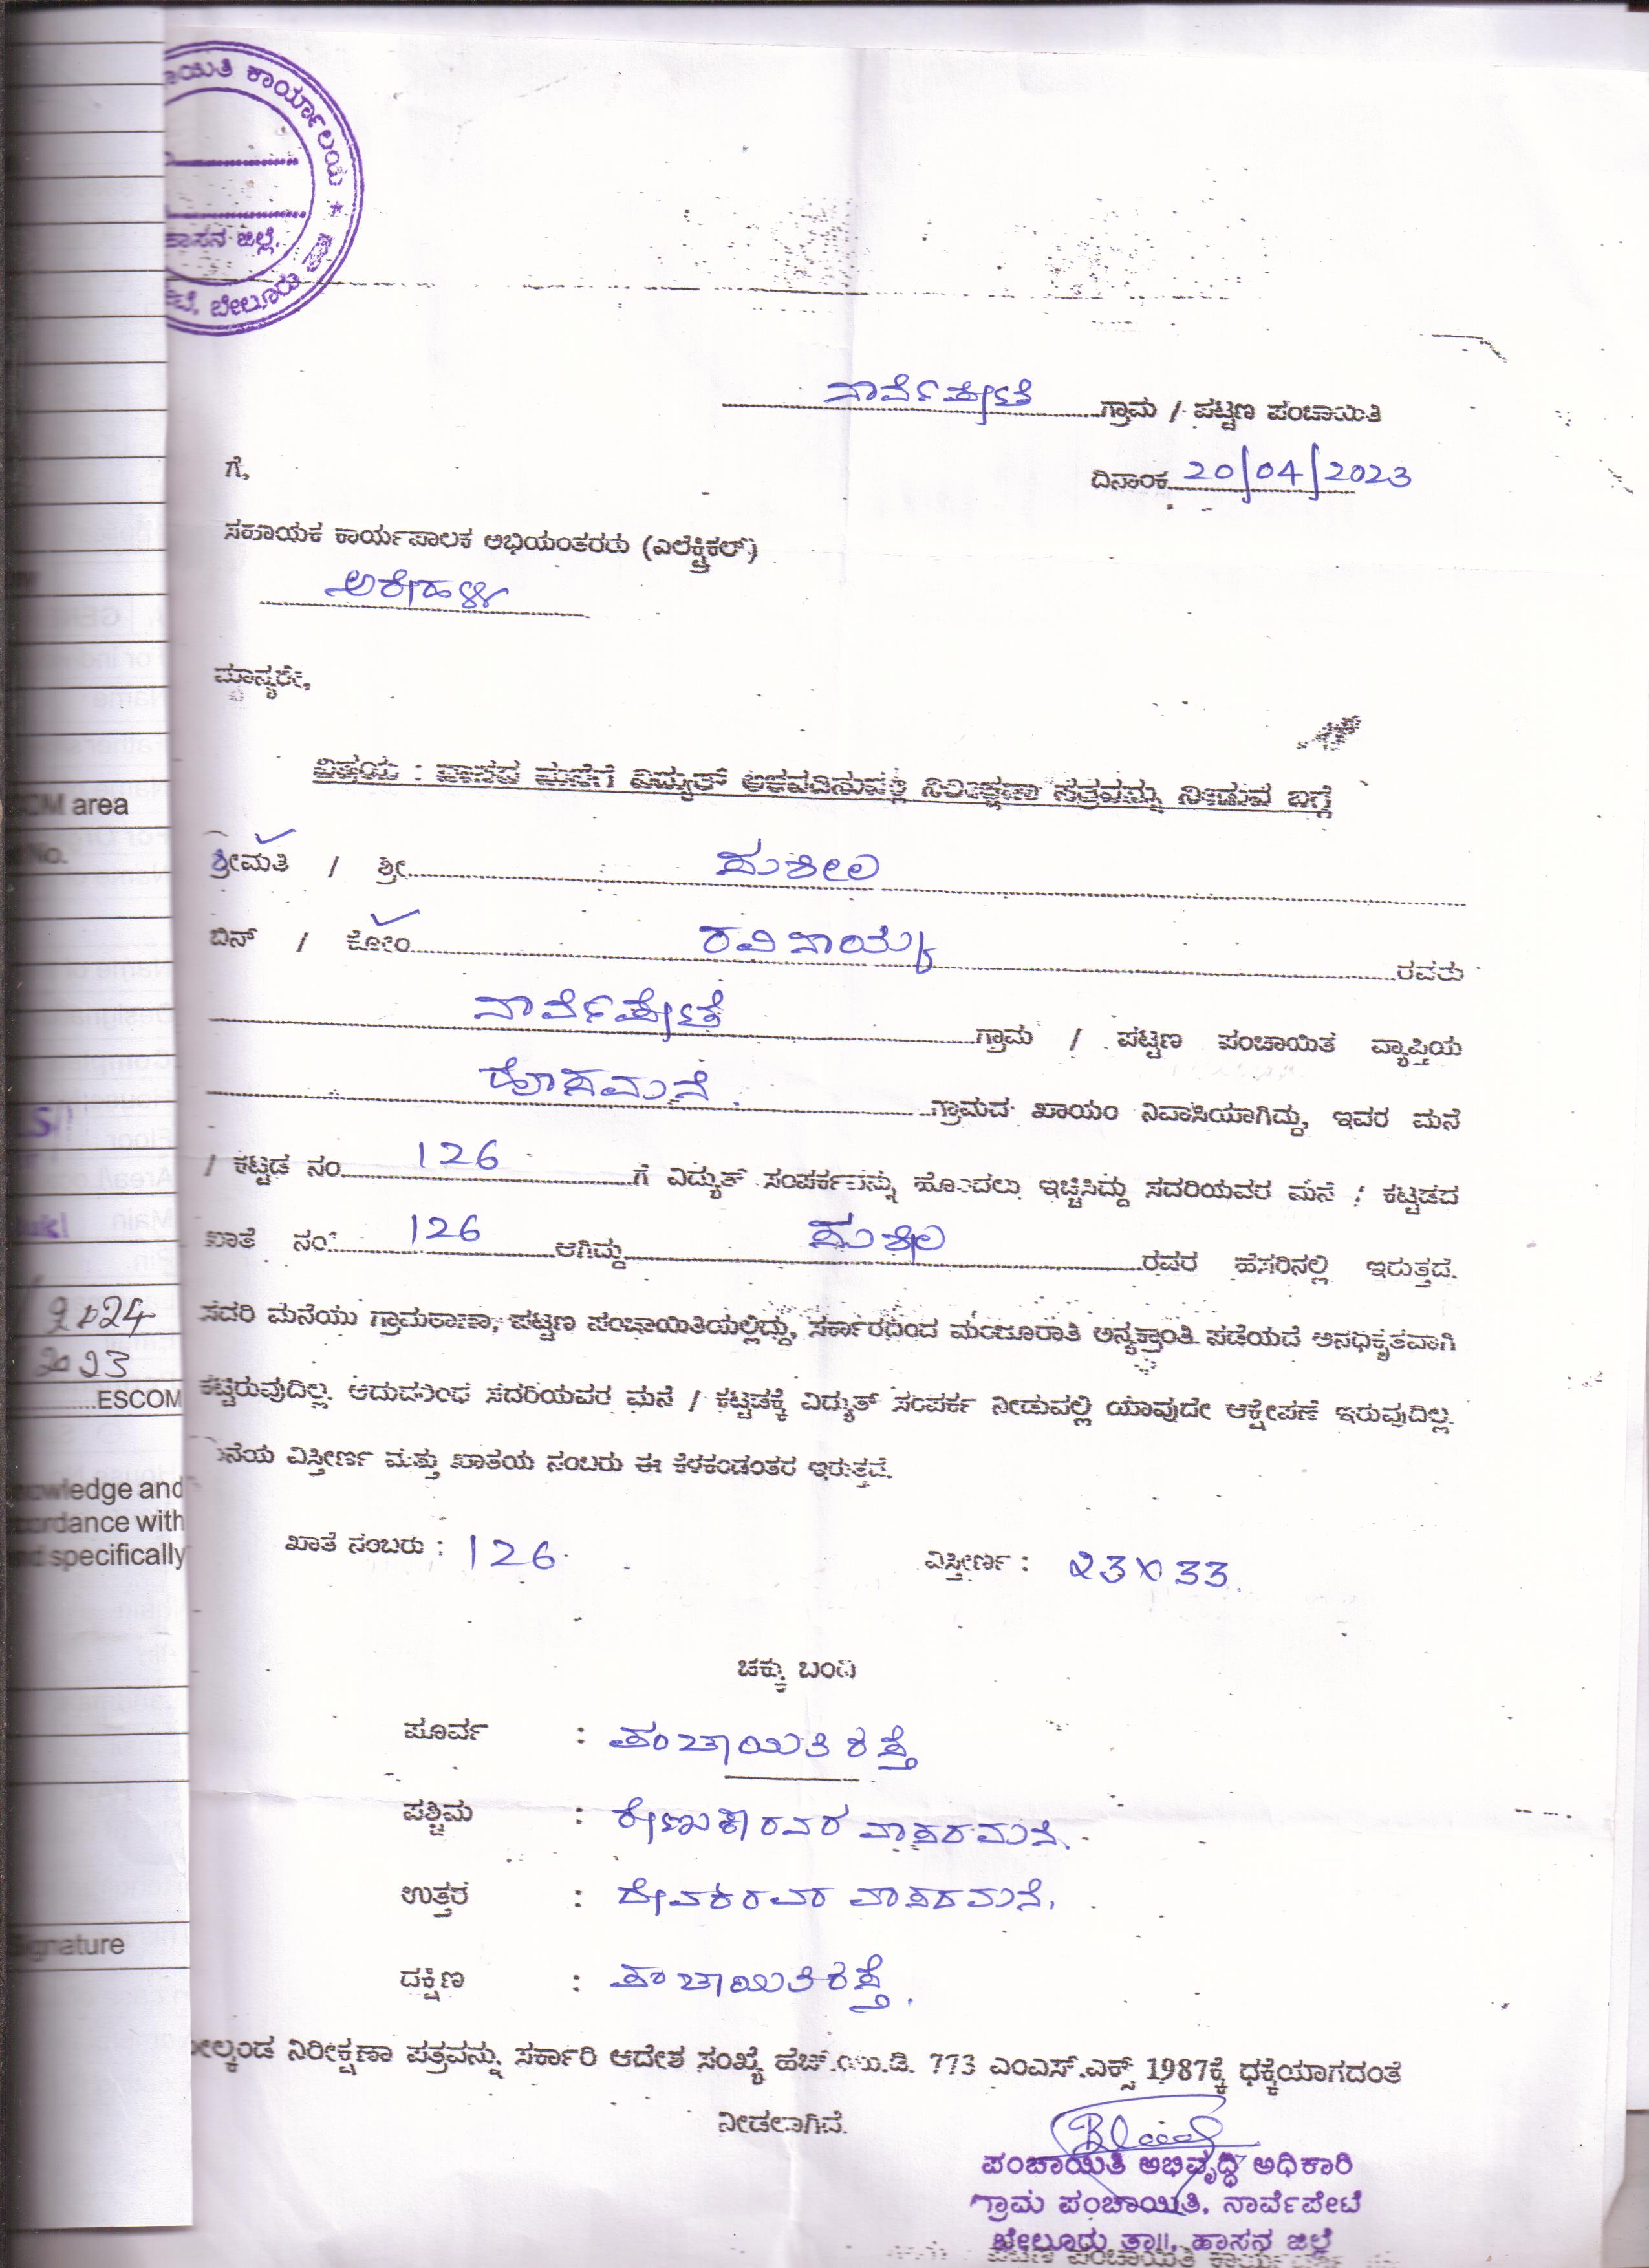 ಕಾರ್ಯಾಲಯ
ಹಾಸನ ಜಿಲ್ಲೆ.
ಬೇಲೂರು
ನಾರ್ವೆಪೇಟೆ ಗ್ರಾಮ / ಪಟ್ಟಣ ಪಂಚಾಯಿತಿ
ಗೆ,
ದಿನಾಂಕ 20/04/2023
ಸಹಾಯಕ ಕಾರ್ಯಪಾಲಕ ಅಭಿಯಂತರರು (ಎಲೆಕ್ಟ್ರಿಕಲ್)
ಅರೇಹಳ್ಳಿ
ಮಾನ್ಯರೇ,
ವಿಷಯ : ವಾಸದ ಮನೆಗೆ ವಿದ್ಯುತ್ ನಿರೀಕ್ಷಣಾ ಪತ್ರವನ್ನು ನೀಡುವ ಬಗ್ಗೆ
ಶ್ರೀಮತಿ / ಶ್ರೀ ಸುಶೀಲ
ಬಿನ್ / ಕೋಂ ರವಿನಾಯ್ಕ ರವರು
ನಾರ್ವೆಪೇಟೆ ಗ್ರಾಮ / ಪಟ್ಟಣ ಪಂಚಾಯಿತ ವ್ಯಾಪ್ತಿಯ
ಹೊಸಮನೆ ಗ್ರಾಮದ ಖಾಯಂ ನಿವಾಸಿಯಾಗಿದ್ದು, ಇವರ ಮನೆ
/ ಕಟ್ಟಡ ನಂ 126 ಗೆ ವಿದ್ಯುತ್ ಸಂಪರ್ಕವನ್ನು ಹೊಂದಲು ಇಚ್ಛಿಸಿದ್ದು ಸದರಿಯವರ ಮನೆ / ಕಟ್ಟಡದ
ಖಾತೆ ನಂ 126 ಆಗಿದ್ದು ಸುಶೀಲ ರವರ ಹೆಸರಿನಲ್ಲಿ ಇರುತ್ತದೆ.
ಸದರಿ ಮನೆಯು ಗ್ರಾಮಠಾಣಾ, ಪಟ್ಟಣ ಪಂಚಾಯಿತಿಯಲ್ಲಿದ್ದು, ಸರ್ಕಾರದಿಂದ ಮಂಜೂರಾತಿ ಅನ್ಯಕ್ರಾಂತಿ ಪಡೆಯದೆ ಅನಧಿಕೃತವಾಗಿ
ಕಟ್ಟಿರುವುದಿಲ್ಲ. ಆದುದರಿಂದ ಸದರಿಯವರ ಮನೆ / ಕಟ್ಟಡಕ್ಕೆ ವಿದ್ಯುತ್ ಸಂಪರ್ಕ ನೀಡುವಲ್ಲಿ ಯಾವುದೇ ಆಕ್ಷೇಪಣೆ ಇರುವುದಿಲ್ಲ.
ನೆಯ ವಿಸ್ತೀರ್ಣ ಮತ್ತು ಖಾತೆಯ ನಂಬರು ಈ ಕೆಳಕಂಡಂತರ ಇರುತ್ತವೆ.
ಖಾತೆ ನಂಬರು : 126
ವಿಸ್ತೀರ್ಣ : 23 X 33
ಚಕ್ಕು ಬಂದಿ
ಪೂರ್ವ : ಪಂಚಾಯಿತಿ ರಸ್ತೆ
ಪಶ್ಚಿಮ : ರೇಣುಕಾರವರ ವಾಸದಮನೆ.
ಉತ್ತರ : ದೇವಕರವರ ವಾಸದಮನೆ.
ದಕ್ಷಿಣ : ಪಂಚಾಯಿತಿ ರಸ್ತೆ.
ಲ್ಕಂಡ ನಿರೀಕ್ಷಣಾ ಪತ್ರವನ್ನು ಸರ್ಕಾರಿ ಆದೇಶ ಸಂಖ್ಯೆ ಹೆಚ್.ಯು.ಡಿ. 773 ಎಂಎಸ್.ಎಕ್ಸ್ 1987ಕ್ಕೆ ಧಕ್ಕೆಯಾಗದಂತೆ
ನೀಡಲಾಗಿದೆ.
ಪಂಚಾಯಿತಿ ಅಭಿವೃದ್ಧಿ ಅಧಿಕಾರಿ
ಗ್ರಾಮ ಪಂಚಾಯಿತಿ, ನಾರ್ವೆಪೇಟೆ
ಬೇಲೂರು ತಾ||, ಹಾಸನ ಜಿಲ್ಲೆ
area
No.
2024
2023
ESCOM
wledge and
ordance with
specifically
ignature